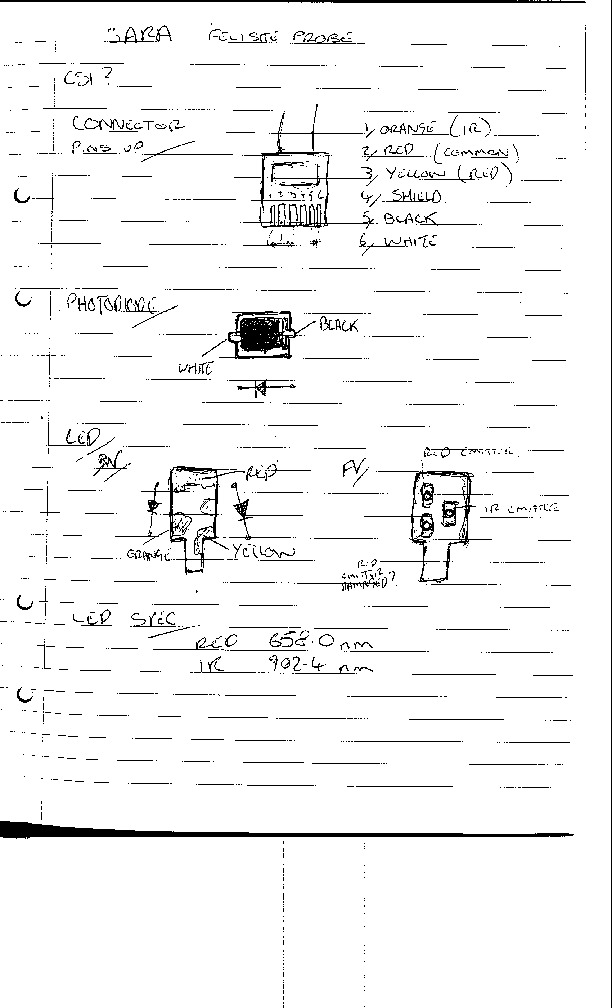 SARA FELISITE PROBE
CSI?
CONNECTOR
PINS UP
1 2 3 4 5 6
1, ORANGE (IR)
2, RED (COMMON)
3, YELLOW (RED)
4, SHIELD
5, BLACK
6, WHITE
PHOTODIODE
BLACK
WHITE
LED
RED
ORANGE
YELLOW
FV
RED EMITTER
IR EMITTER
RED
EMITTER
DAMAGED?
LED SPEC
RED 658.0 nm
IR 902.4 nm